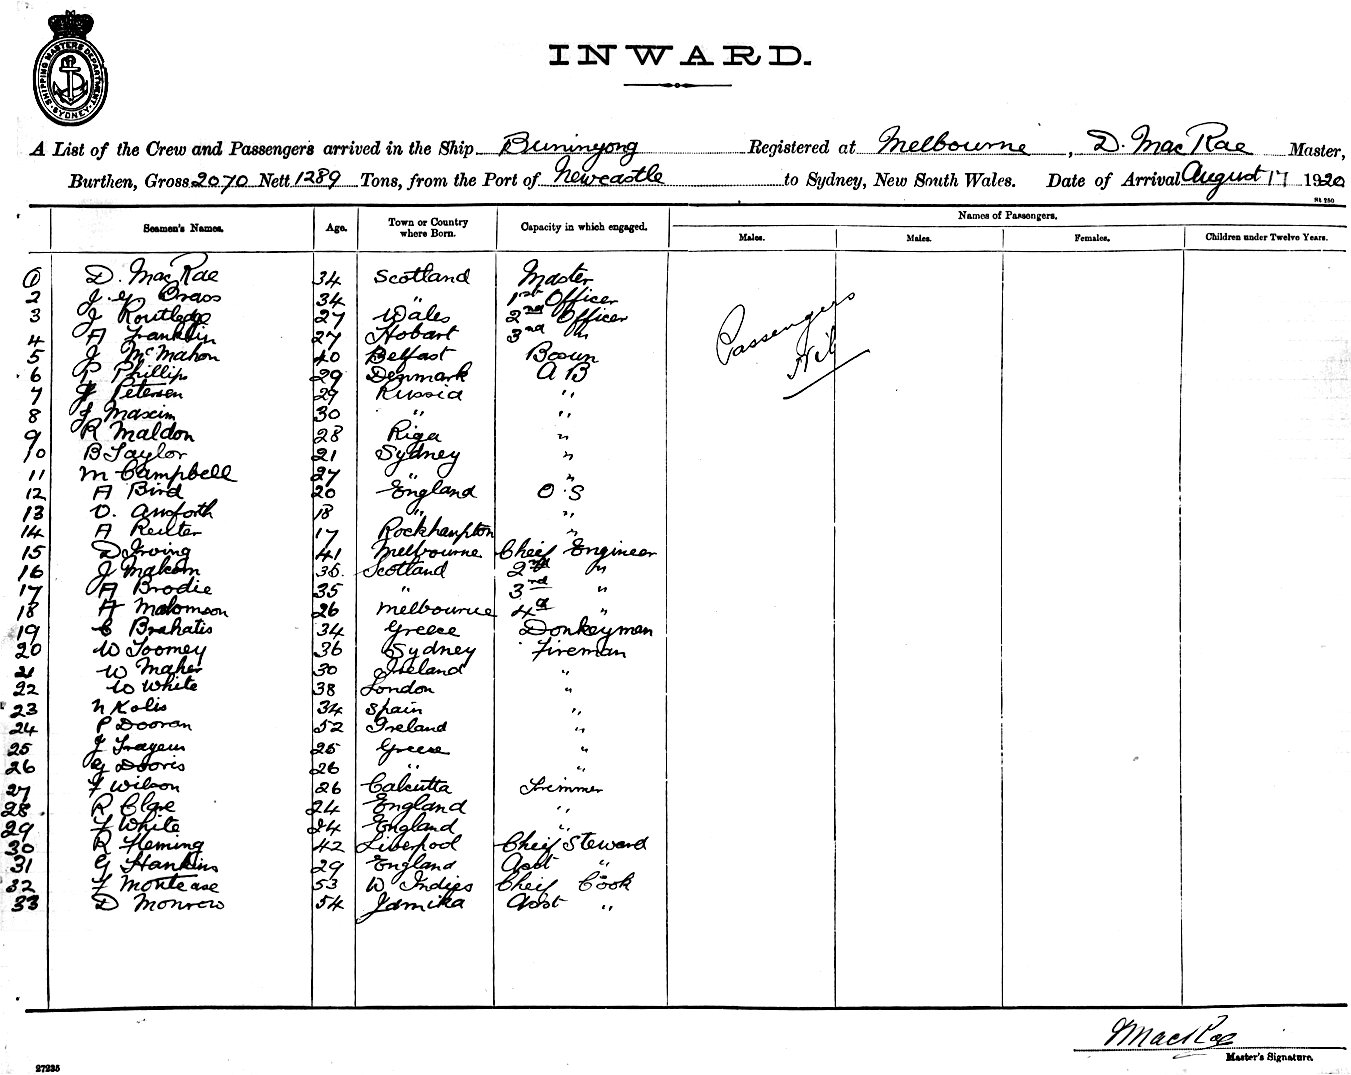 SHIPPING MASTERS DEPARTMENT SYDNEY
INWARD.
A List of the Crew and Passengers arrived in the Ship Buninyong Registered at Melbourne, D. Mac Rae Master,
Burthen, Gross 2070 Nett 1289 Tons, from the Port of Newcastle to Sydney, New South Wales. Date of Arrival August 17 1920
Names of Passengers.
Seamen's Names. Age. Town or Country where Born. Capacity in which engaged. Males. Males. Females. Children under Twelve Years.
1 D. Mac Rae 34 Scotland Master
2 J. Brass 34 " 1st Officer
3 J Routledge 27 Wales 2nd Officer
4 A Franklin 27 Hobart 3rd "
5 J McMahon 40 Belfast Bosun
6 P Phillips 29 Denmark A B
7 Petersen 29 Russia "
8 J Maxim 30 " "
9 R Maldon 28 Riga "
10 B Taylor 21 Sydney "
11 M Campbell 27 " "
12 A Bird 20 England O.S
13 O. 18 " "
14 A Reilter 17 Rockhampton "
15 D Irving 41 Melbourne Chief Engineer
16 J Malcom 36 Scotland 2nd "
17 A Brodie 35 " 3rd "
18 A Malomson 26 Melbourne 4th "
19 C Brahatis 34 Greece Donkeyman
20 W Toomey 36 Sydney Fireman
21 W Maher 30 Ireland "
22 W White 38 London "
23 N Kolis 34 Spain "
24 P Dooran 52 Ireland "
25 J 25 Greese "
26 G Dooris 26 " "
27 F Wilson 26 Calcutta Trimmer
28 R Clare 24 England "
29 F White 24 England "
30 R Fleming 42 Liverpool Chief Steward
31 G Hankins 29 England Asst "
32 F Montease 53 W Indies Chief Cook
33 D Monrow 54 Jamika Asst "
Passengers
Nil
MacRae
Master's Signature.
27235